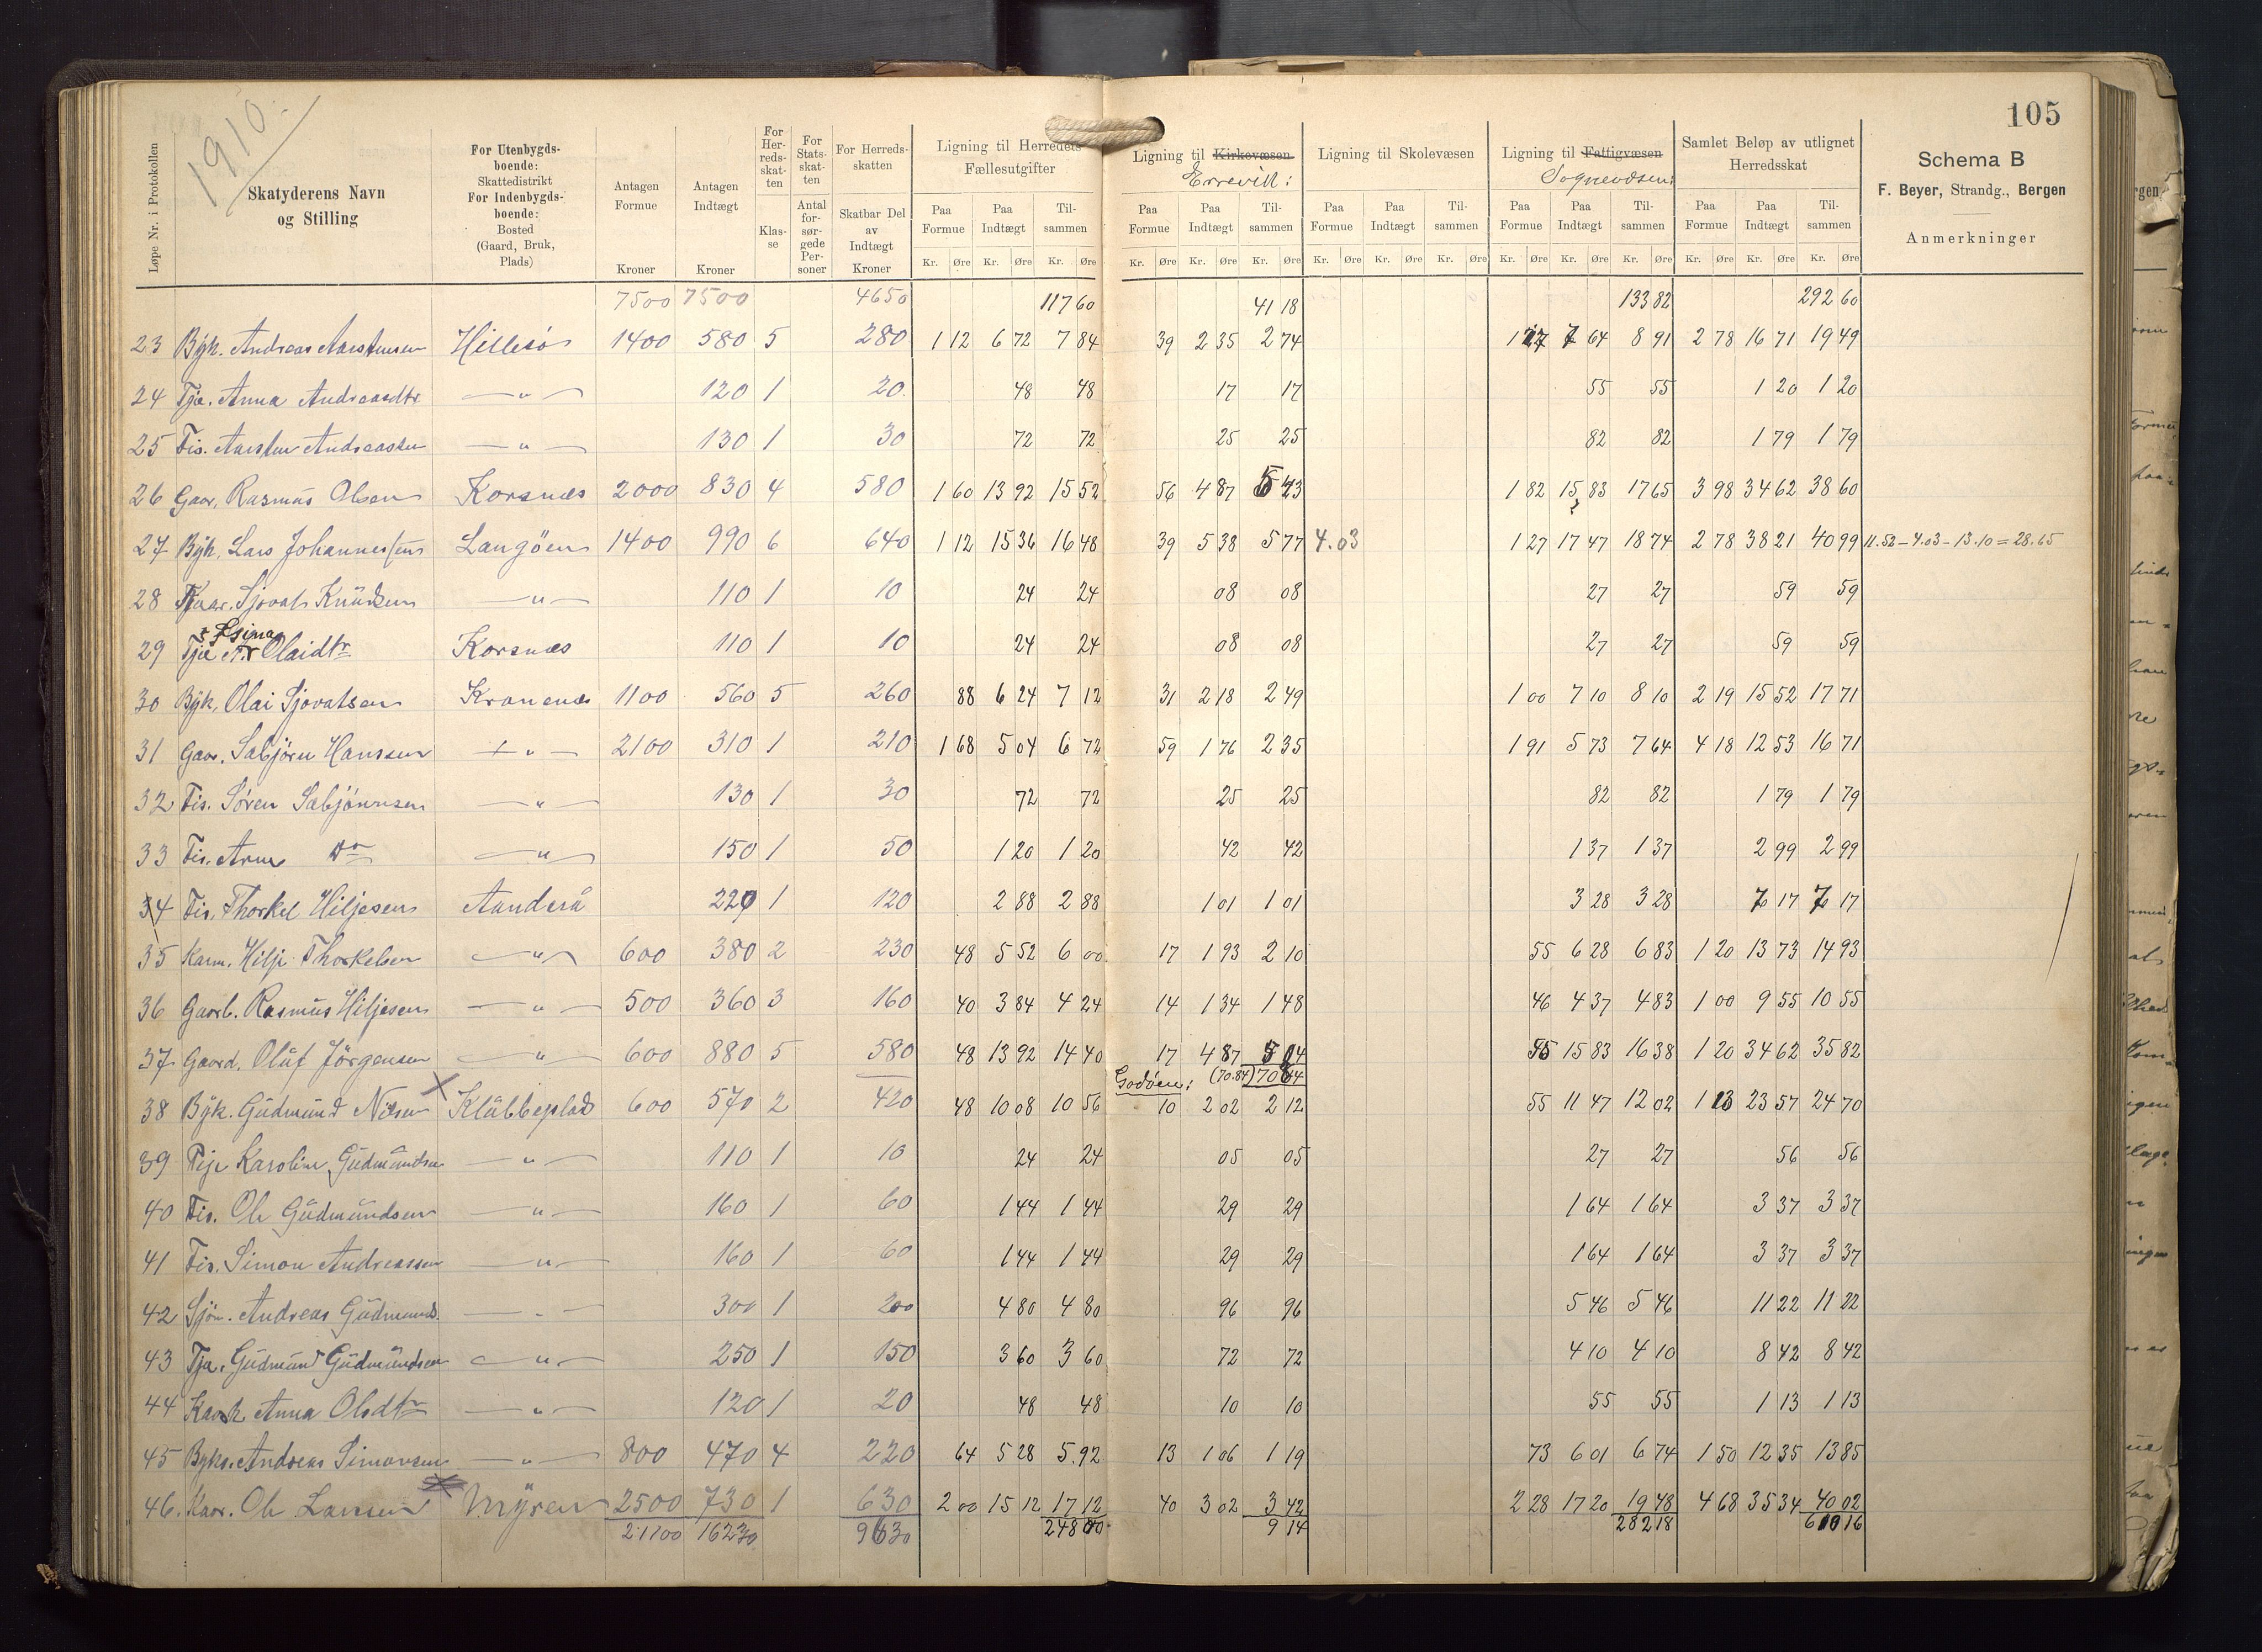 1910.
105
Løpe Nr. i Protokollen
Skatyderens Navn og Stilling
For Utenbygdsboende: Skattedistrikt For Indenbygdsboende: Bosted (Gaard, Bruk, Plads)
Antagen Formue Kroner
Antagen Indtægt Kroner
For Herredsskatten Klasse
For Statsskatten Antal forsørgede Personer
For Herredsskatten Skatbar Del av Indtægt Kroner
Ligning til Herredets Fællesutgifter
Ligning til Kirkevæsen
Ligning til Skolevæsen
Ligning til Fattigvæsen
Sognevæsen:
Samlet Beløp av utlignet Herredsskat
Schema B
F. Beyer, Strandg., Bergen
Anmerkninger
Paa Formue Paa Indtægt Tilsammen Paa Formue Paa Indtægt Tilsammen Paa Formue Paa Indtægt Tilsammen Paa Formue Paa Indtægt Tilsammen Paa Formue Paa Indtægt Tilsammen
Kr. Øre Kr. Øre Kr. Øre Kr. Øre Kr. Øre Kr. Øre Kr. Øre Kr. Øre Kr. Øre Kr. Øre Kr. Øre Kr. Øre Kr. Øre Kr. Øre Kr. Øre
7500 7500 4650 117 60 41 18 133 82 292 60
23 Byk. Andreas Aarstensen Hillesö 1400 580 5 280 1 12 6 72 7 84 39 2 35 2 74 1 27 7 64 8 91 2 78 16 71 19 49
24 Tje. Anna Andreasdtr — " — 120 1 20 48 48 17 17 55 55 1 20 1 20
25 Fis. Aarsten Andreassen — " — 130 1 30 72 72 25 25 82 82 1 79 1 79
26 Gaar. Rasmus Olsen Korsnes 2000 830 4 580 1 60 13 92 15 52 56 4 87 5 43 1 82 15 83 17 65 3 98 34 62 38 60
27 Byk. Lars Johannessen Langöen 1400 990 6 640 1 12 15 36 16 48 39 5 38 5 77 4.03 1 27 17 47 18 74 2 78 38 21 40 99 11.52 – 4.03 – 13.10 = 28.65
28 Sjovat Knudsen — " — 110 1 10 24 24 08 08 27 27 59 59
29 Tje Olaidtr Korsnes 110 1 10 24 24 08 08 27 27 59 59
30 Byk. Olai Sjovatsen Kronenes 1100 560 5 260 88 6 24 7 12 31 2 18 2 49 1 00 7 10 8 10 2 19 15 52 17 71
31 Gaar. Sabjörn Hanssen — " — 2100 310 1 210 1 68 5 04 6 72 59 1 76 2 35 1 91 5 73 7 64 4 18 12 53 16 71
32 Fis. Sören Sabjörnsen — " — 130 1 30 72 72 25 25 82 82 1 79 1 79
33 Fis. Arne Do — " — 150 1 50 1 20 1 20 42 42 1 37 1 37 2 99 2 99
34 Fis. Thorkel Hiljesen Aanderå 220 1 120 2 88 2 88 1 01 1 01 3 28 3 28 7 17 7 17
35 Karm. Hilje Thorkelsen — " — 600 380 2 230 48 5 52 6 00 17 1 93 2 10 55 6 28 6 83 1 20 13 73 14 93
36 Gaarb. Rasmus Hiljesen — " — 500 360 3 160 40 3 84 4 24 14 1 34 1 48 46 4 37 4 83 1 00 9 55 10 55
37 Gaard. Oluf Jörgensen — " — 600 880 5 580 48 13 92 14 40 17 4 87 5 04 55 15 83 16 38 1 20 34 62 35 82
Godöen: (70.84) 70 84
38 Byk. Gudmund Nilsen Klubbeplads 600 570 2 420 48 10 08 10 56 10 2 02 2 12 55 11 47 12 02 1 13 23 57 24 70
39 Karoline Gudmundsen — " — 110 1 10 24 24 05 05 27 27 56 56
40 Fis. Ole Gudmundsen — " — 160 1 60 1 44 1 44 29 29 1 64 1 64 3 37 3 37
41 Fis. Simon Andreassen — " — 160 1 60 1 44 1 44 29 29 1 64 1 64 3 37 3 37
42 Sjöm. Andreas Gudmunds. — " — 300 1 200 4 80 4 80 96 96 5 46 5 46 11 22 11 22
43 Tje. Gudmund Gudmundsen — " — 250 1 150 3 60 3 60 72 72 4 10 4 10 8 42 8 42
44 Anna Olsdtr — " — 120 1 20 48 48 10 10 55 55 1 13 1 13
45 Byks. Andreas Simonsen — " — 800 470 4 220 64 5 28 5.92 13 1 06 1 19 73 6 01 6 74 1 50 12 35 13 85
46. Kaar. Ole Larssen Myren 2500 730 1 630 2 00 15 12 17 12 40 3 02 3 42 2 28 17 20 19 48 4 68 35 34 40 02
21100 16230 9630 248 00 9 14 282 18 610 16